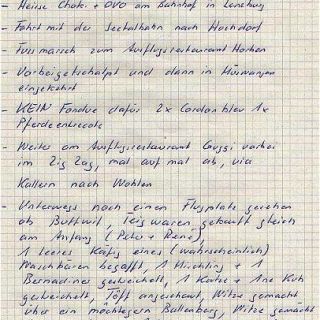 - Heisse Choki + OVO am Bahnhof in Lenzburg
- Fahrt mit der Seetalbahn nach Hochdorf
- Fussmarsch zum Ausflugsrestaurant Horben
- Vorbeigetschalpt und dann in Müswangen
eingekehrt
- KEIN Fondue dafür 2x Cordonbleu 1x
Pferdeentrecote
- Weiter am Ausflugsrestaurant Guggi vorbei
im Zig Zag, mal auf mal ab, via
Kallern nach Wohlen
- Unterwegs nach einem Flugplatz gesehen
ob Buttwil, Teigwaren gekauft gleich
am Anfang (Peter + René),
1 leeres Käfig eines (wahrscheinlich)
Waschbären begafft, 1 +1
Bernadiner gestreichelt, 1 Katze + 1ne Kuh
gestreichelt, Töff angeschaut, Witze gemacht
über ein Ballenberg, Witze gemacht